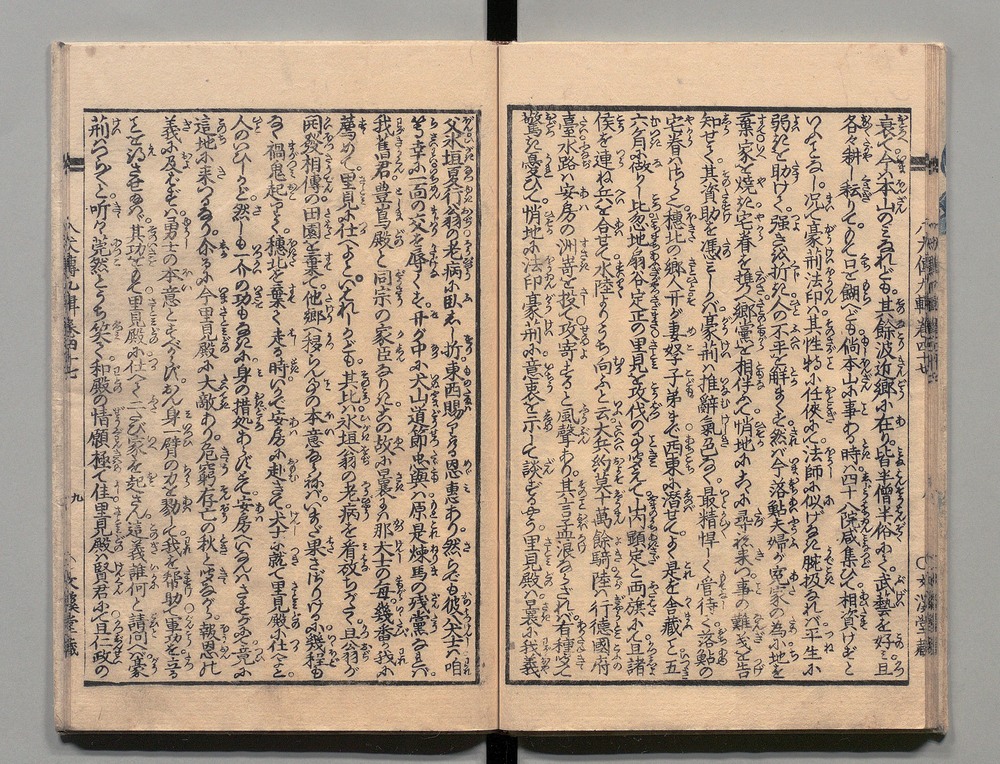 衰て今ハ本山のミなれども。其餘波近郷に在り。皆半僧半俗にて。武藝を好ミ且
各々耕し耘りて。もて口を餬へども。倘本山に事ある時ハ。四十八傑咸集ひて。相負けじと
いふとなり。况て豪荊法印ハ。其性特に任侠にて。法師に似げなき腕扱なれバ。平生に
弱きを助けて。強きを折き。人の不平を解まくす。然バ今落鮎夫婦が。寃家の為に地を
棄。家を焼き。宅眷を携へ。郷黨を相伴ふて。悄地にこゝに尋ね来つる。事の難義を告
知せて。其資助を憑ミしかバ。豪荊ハ推辞氣色なく。最精悍しく管待て。落鮎の
宅眷ハさらなり。穂北の郷人們が妻孥子弟まで。西東に潜して。よく是を舎藏こと。五
六个月に做りし比。忽地扇谷定正の。里見を攻伐の事聞えて。山内顕定と両漁にて。且諸
侯を連ね兵を合せて。水陸よりうち向ふと云。大兵約莫十萬餘騎。陸ハ行徳國府
臺。水路ハ安房の洲嵜を投て。攻寄すると風聲あり。其言子孟浪ならざれバ。有種ハ
驚き憂ひて。悄地に法印豪荊に。意衷を示して談ずるやう。里見殿ハ曩に我義
父氷垣夏行翁の。老病に臥しゝ折。東西賜りたる恩惠あり。然らでも彼八犬士六咱
等。幸に一面の交を辱くす。那が中に犬山道節忠與ハ。原是煉馬の残黨なるに。
我舊君豊嶌殿と。同宗の家臣なりきとの故に。曩にハ那犬士の母幾番か。我に
薦めて。里見に仕へよといハれしかども。其比ハ氷垣翁の老病を看放ちがたく。且翁が
開發相傳の。田園を棄て他郷へ移らんハ。本意ならねバ。いまだ果さゞりけるに。幾程も
なく禍鬼起りて。穂北を棄て走る時。いかで安房に赴きて。犬士に就て里見殿に。仕へよと
人のいひしかど。然しも一个の功もなきに。身の措処あらざる
這地に来つるなり。介るに今里見殿に大敵あり。危窮存亡の秋と
義に及ばずハ勇士の本意とすべからず。
其功をもて里見殿に仕へて。一ㇳたび家を起さん。這義誰何と請問へバ。豪
荊つら〳〵と听て。莞然とうち笑て。和殿の情願極て佳。里見殿ハ賢君にて。且仁政の
八犬傳九輯巻四十七
九